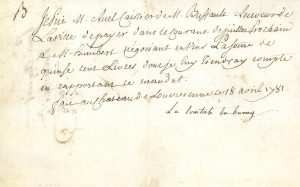 13
Je prie M. Buel Caissier de M. Buffault Receveur de
La ville de payer dans le courant de juillet prochain
à M. Imbert négociant en vins La somme de
quinze cent Livres dont je luy tiendray compte
en rapportant ce mandat.
fait au chateau de Louveciennes ce 18 avril 1781.
La Comtesse du barry